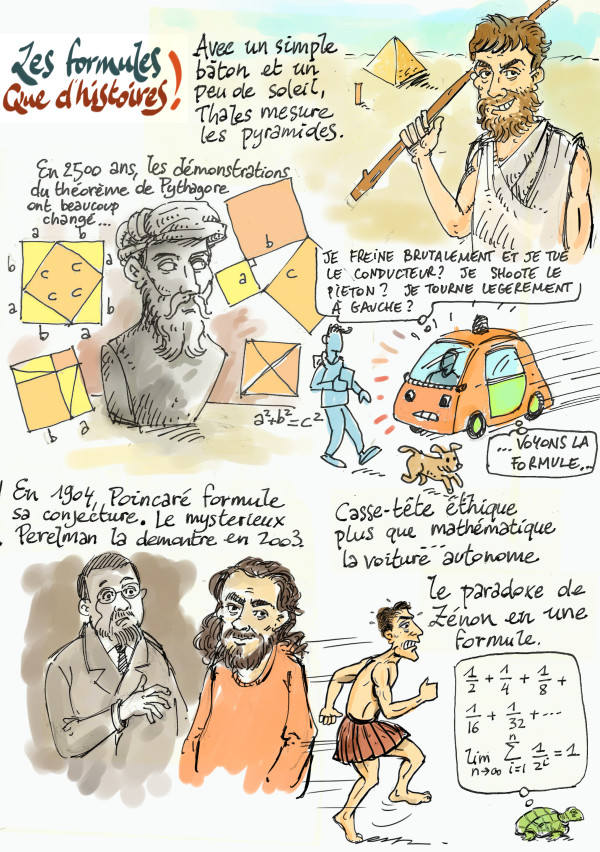 Les formules
Que d'histoires!
Avec un simple
bâton et un
peu de soleil,
Thales mesure
les pyramides.
En 2500 ans, les démonstrations
du théorème de Pythagore
ont beaucoup
changé...
a b
b a
c c
c c
a b
b a
b
a
c
a
b
a
b
a²+b²=c²
JE FREINE BRUTALEMENT ET JE TUE
LE CONDUCTEUR? JE SHOOTE LE
PIETON? JE TOURNE LEGEREMENT
À GAUCHE?
... VOYONS LA
FORMULE...
Casse-tête éthique
plus que mathématique
la voiture autonome
En 1904, Poincaré formule
sa conjecture. Le mysterieux
Perelman la demontre en 2003.
le paradoxe de
Zénon en une
formule.
1/2 + 1/4 + 1/8 +
1/16 + 1/32 + ...
lim n→∞ n ∑ i=1 1/2^i = 1